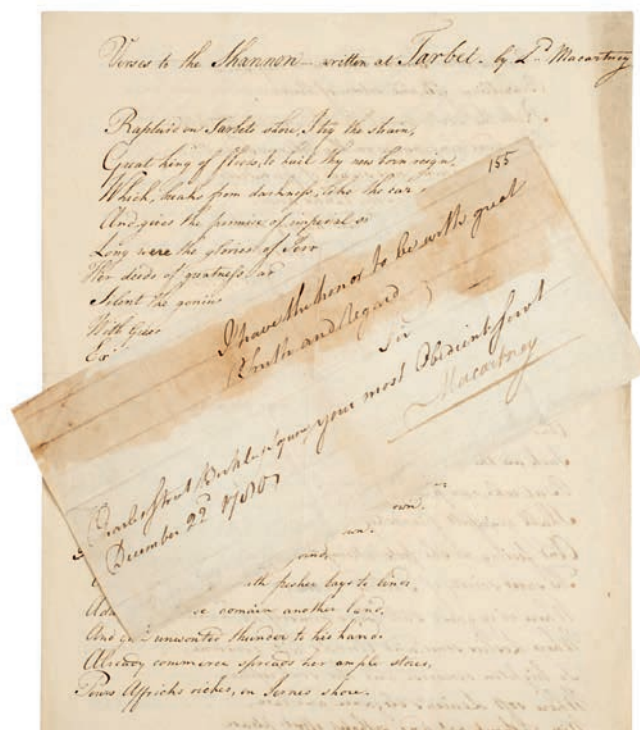 Verses to the Shannon – written at Tarbet. by Ld. Macartney
Rapture on Tarbets shore, I try the strain,
Great king of floods, to hail thy new born reign,
Which, breaks from darkness, like the car
And gives the promise of imperial
Long were the glories of
Her deeds of greatness,
Silent the genius
With
155
I have the honor to be with great
Truth and Regard
Sir
your most Obedient Servt
Macartney
Charles Street Berkley Square
December 22d 1780
own.
own.
th fresher lays to
comain another land,
And unwonted thunder to his hand.
Already commerce spreads her ample stores,
Pours Affricks riches, on Iernes shore.